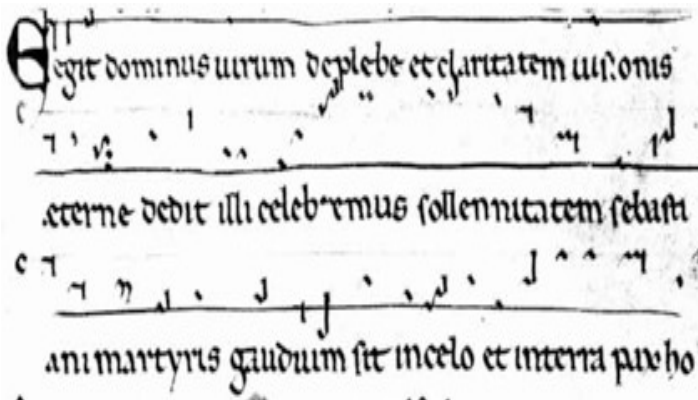 Eegit dominus uirum deplebe et claritatem uisionis
eterne dedit illi celebremus sollennitatem sebasti
ani martyris gaudium sit incelo et interra pax ho